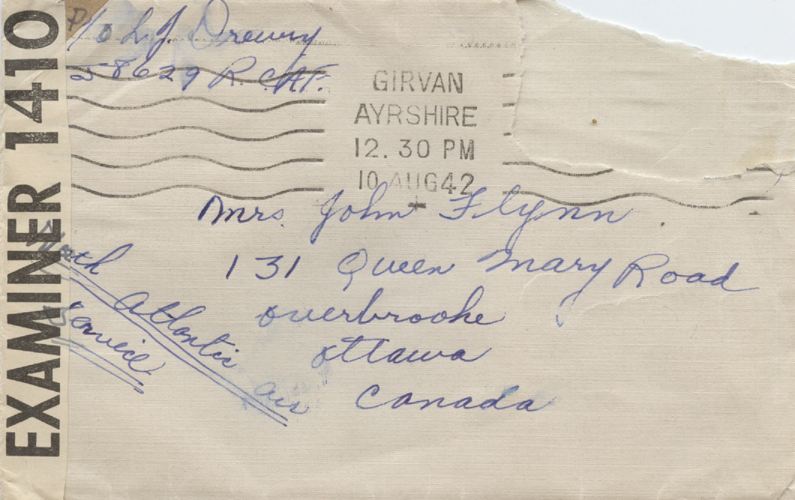 P/o L.J. Drewry
58629 R.C.A.F.
GIRVAN
AYRSHIRE
12.30 PM
10 AUG 42
EXAMINER 1410
Mrs. John Flynn
131 Queen Mary Road
Overbrooke
Ottawa
Canada
North
Atlantic Air
Service